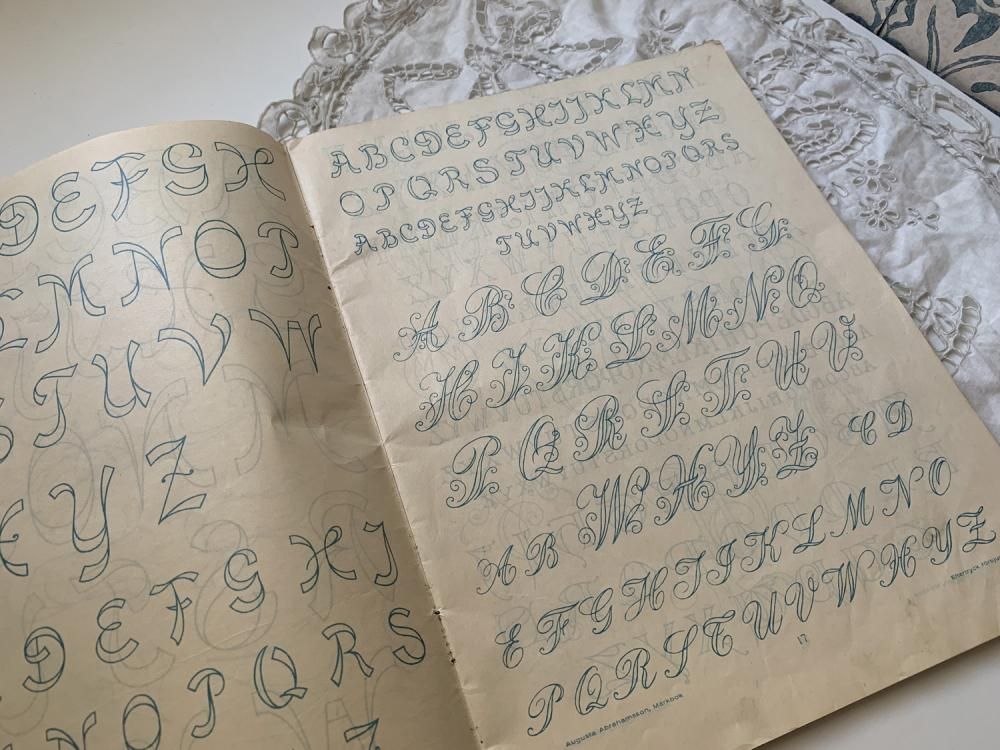 D E F G H
M N O P
T U V W
Y Z
D E F G H J
N O P Q R S
Z
A B C D E F G H I J K L M N
O P Q R S T U V W X Y Z
A B C D E F G H I J K L M N O P Q R S
T U V W X Y Z
A B C D E F G
H I K L M N O
P Q R S T U V
W X Y Z
A B C D
E F G H I J K L M N O
P Q R S T U V W X Y Z
17
Augusta Abrahamsson, Märkbok
Eftertryck